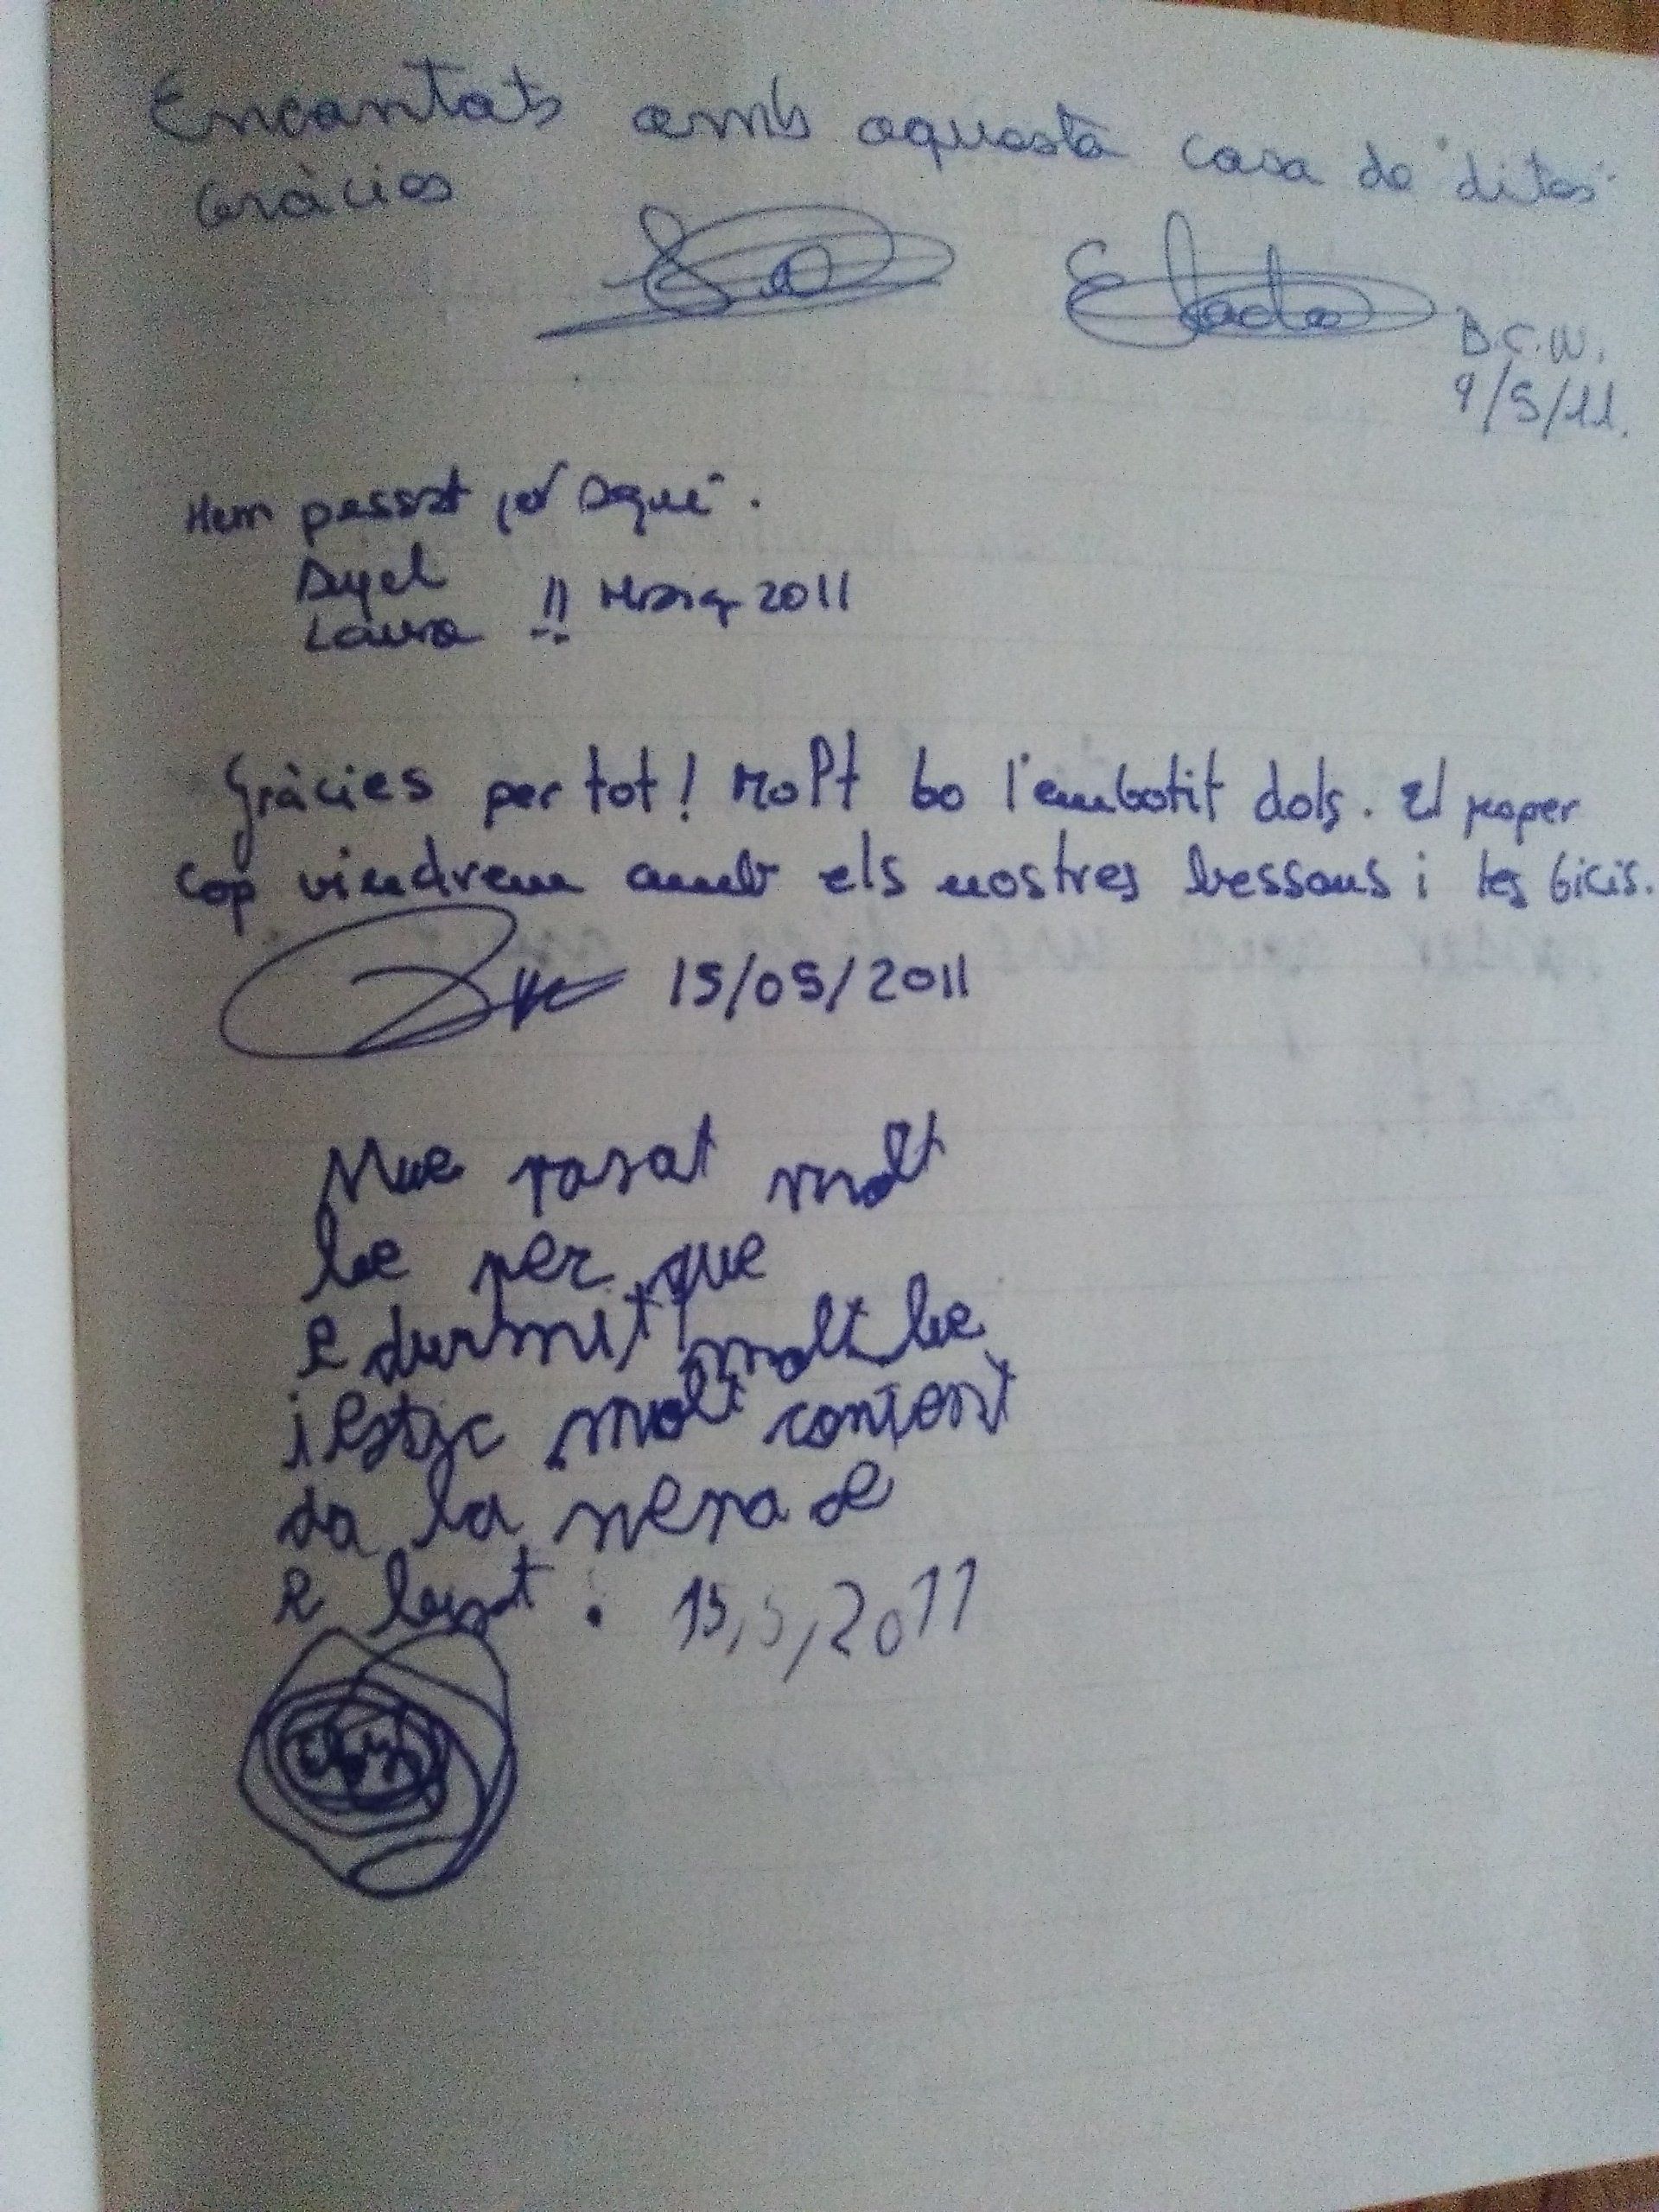 Encantats amb aquesta casa de "dites"
Gràcies
B.C.W.
9/5/11.
Hem passat per aquí.
Àngel
Laura !! Març 2011
Gràcies per tot! Molt bo l'embotit dolç. El proper
cop vindrem amb els nostres bessons i les bicis.
15/05/2011
Mue pasat molt
be per que
e durmit molt be
i estic molt content
da la nena de
e
15,5,2011